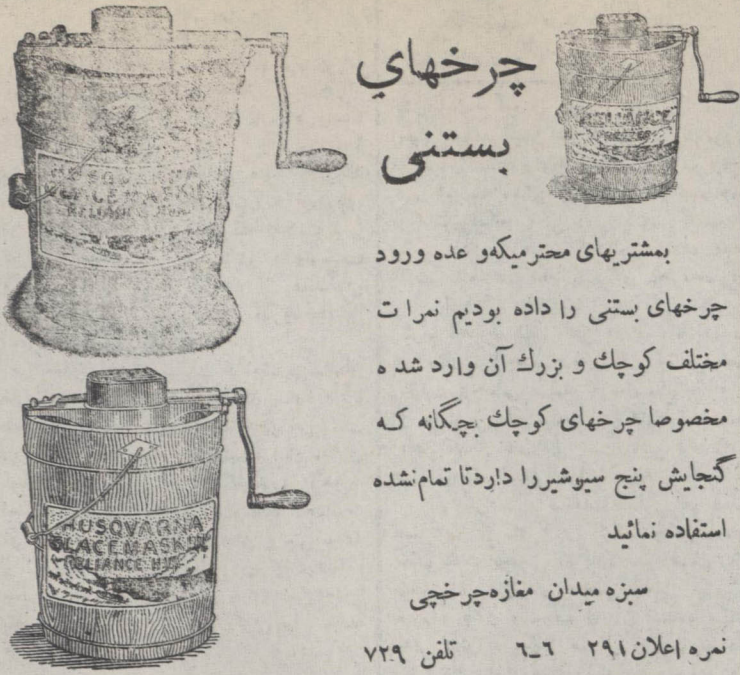 چرخهای
بستنی
بمشتریهای محترمیکه‌و عده ورود
چرخهای بستنی را داده بودیم نمرات
مختلف کوچك و بزرك آن وارد شده
مخصوصا چرخهای کوچك بچگانه که
گنجایش پنج سیر‌شیررا داردتا تمام‌نشده
استفاده نمائید
سبزه میدان مغازه‌چرخچی
نمره اعلان ۲۹۱ ۶_۶ تلفن ۷۲۹
RELIANCE
HUSQVARNA
GLACEMASKIN
RELIANCE
HUSQVARNA
GLACEMASKIN
RELIANCE